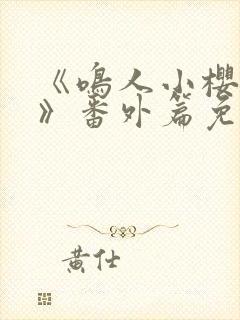 《鸣人小樱
》番外篇免
黄仕